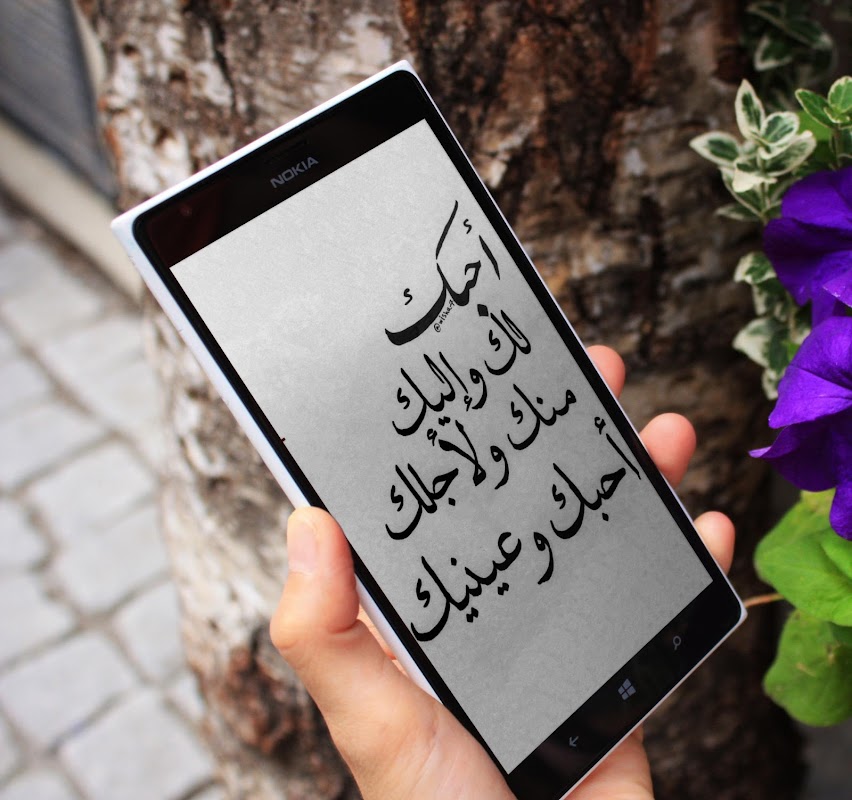 NOKIA
أحبك
لك وإليك
منك ولأجلك
أحبك وعينيك